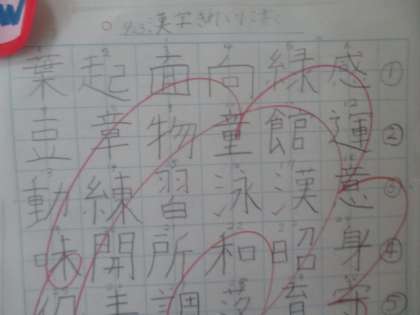 漢字
葉起面向緑感①
豆章物童館運②
動練習泳漢意③
味開所和昭身④
調 育 ⑤